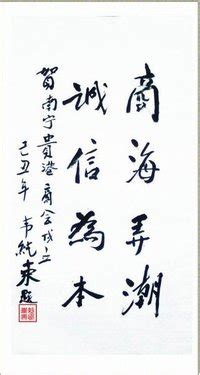 商海弄潮
誠信為本
賀南宁貴港商会成立
己丑年 韦純束題